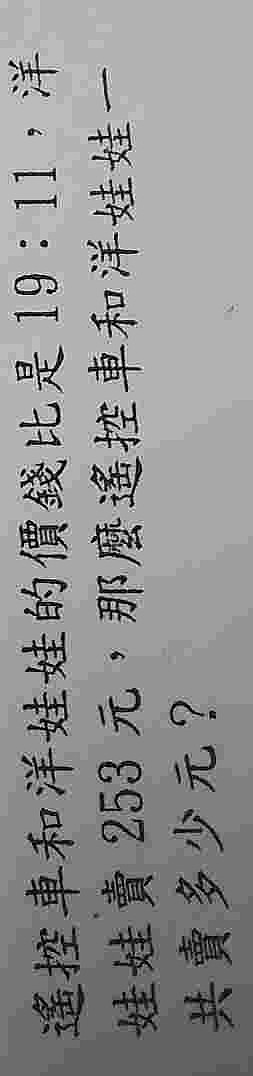 遙控車和洋娃娃的價錢比是 19：11，洋
娃娃賣 253 元，那麼遙控車和洋娃娃一
共賣多少元？